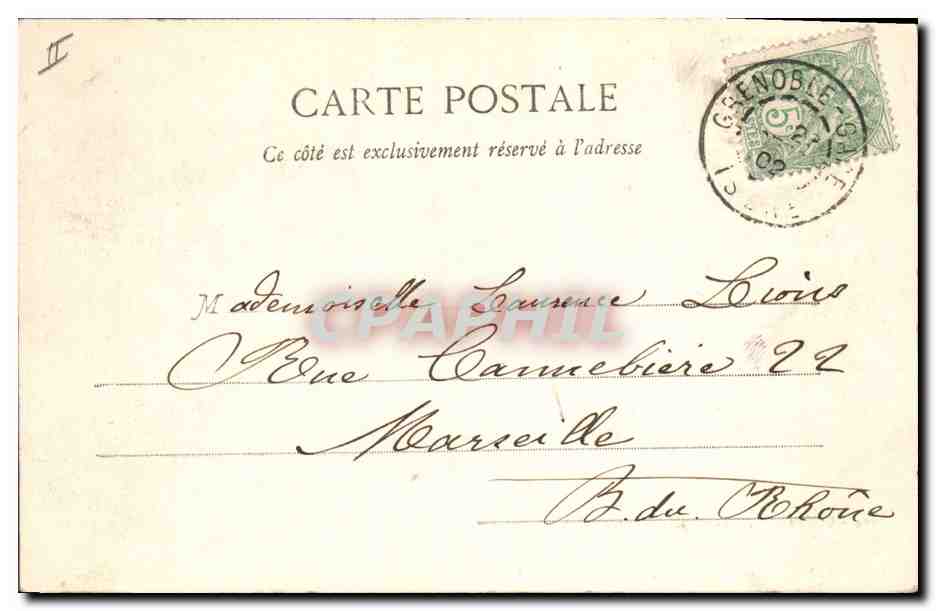 II
CARTE POSTALE
Ce côté est exclusivement réservé à l'adresse
GRENOBLE
02
5
Mademoiselle Laurence Lions
Rue Cannebière 22
Marseille
B. du. Rhône
CPAPHIL